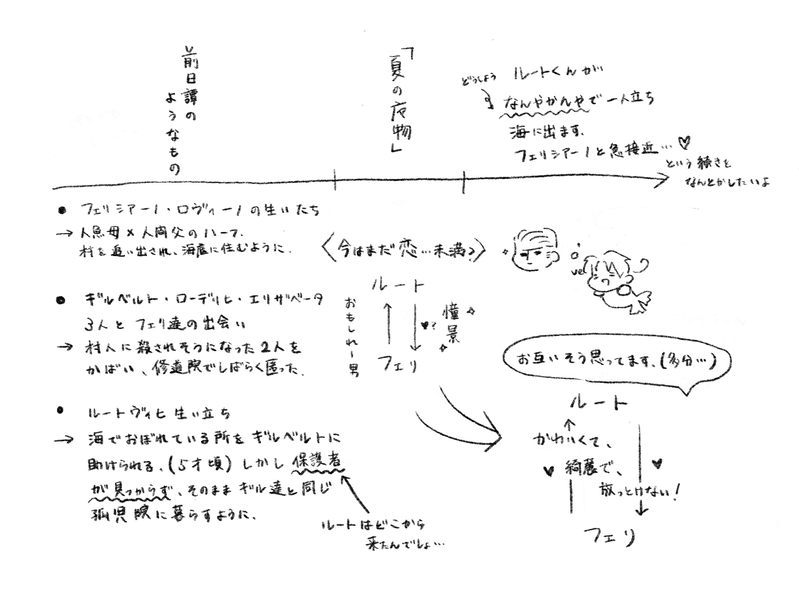 前日譚の
ようなもの
「夏の夜物」
どうしよう
ルートくんが
なんやかんやで一人立ち
海に出ます。
フェリシアーノと急接近…♥
という続きを
なんとかしたいよ
● フェリシアーノ・ロヴィーノの生いたち
→ 人魚母×人間父のハーフ。
村を追い出され、海底に住むように。
● ギルベルト・ローデリヒ・エリザベータ
3人とフェリ達の出会い
→ 村人に殺されそうになった2人を
かばい、修道院でしばらく匿った。
● ルートヴィヒ生い立ち
→ 海でおぼれている所をギルベルトに
助けられる。(5才頃)しかし保護者
が見つからず、そのままギル達と同じ
孤児院に暮らすように。
ルートはどこから
来たんでしょ…
〈今はまだ恋…未満?〉
ルート
おもしれー男
♥?
憧景
フェリ
ve
お互いそう思ってます。(多分…)
ルート
かわいくて、
綺麗で、
放っとけない!
フェリ